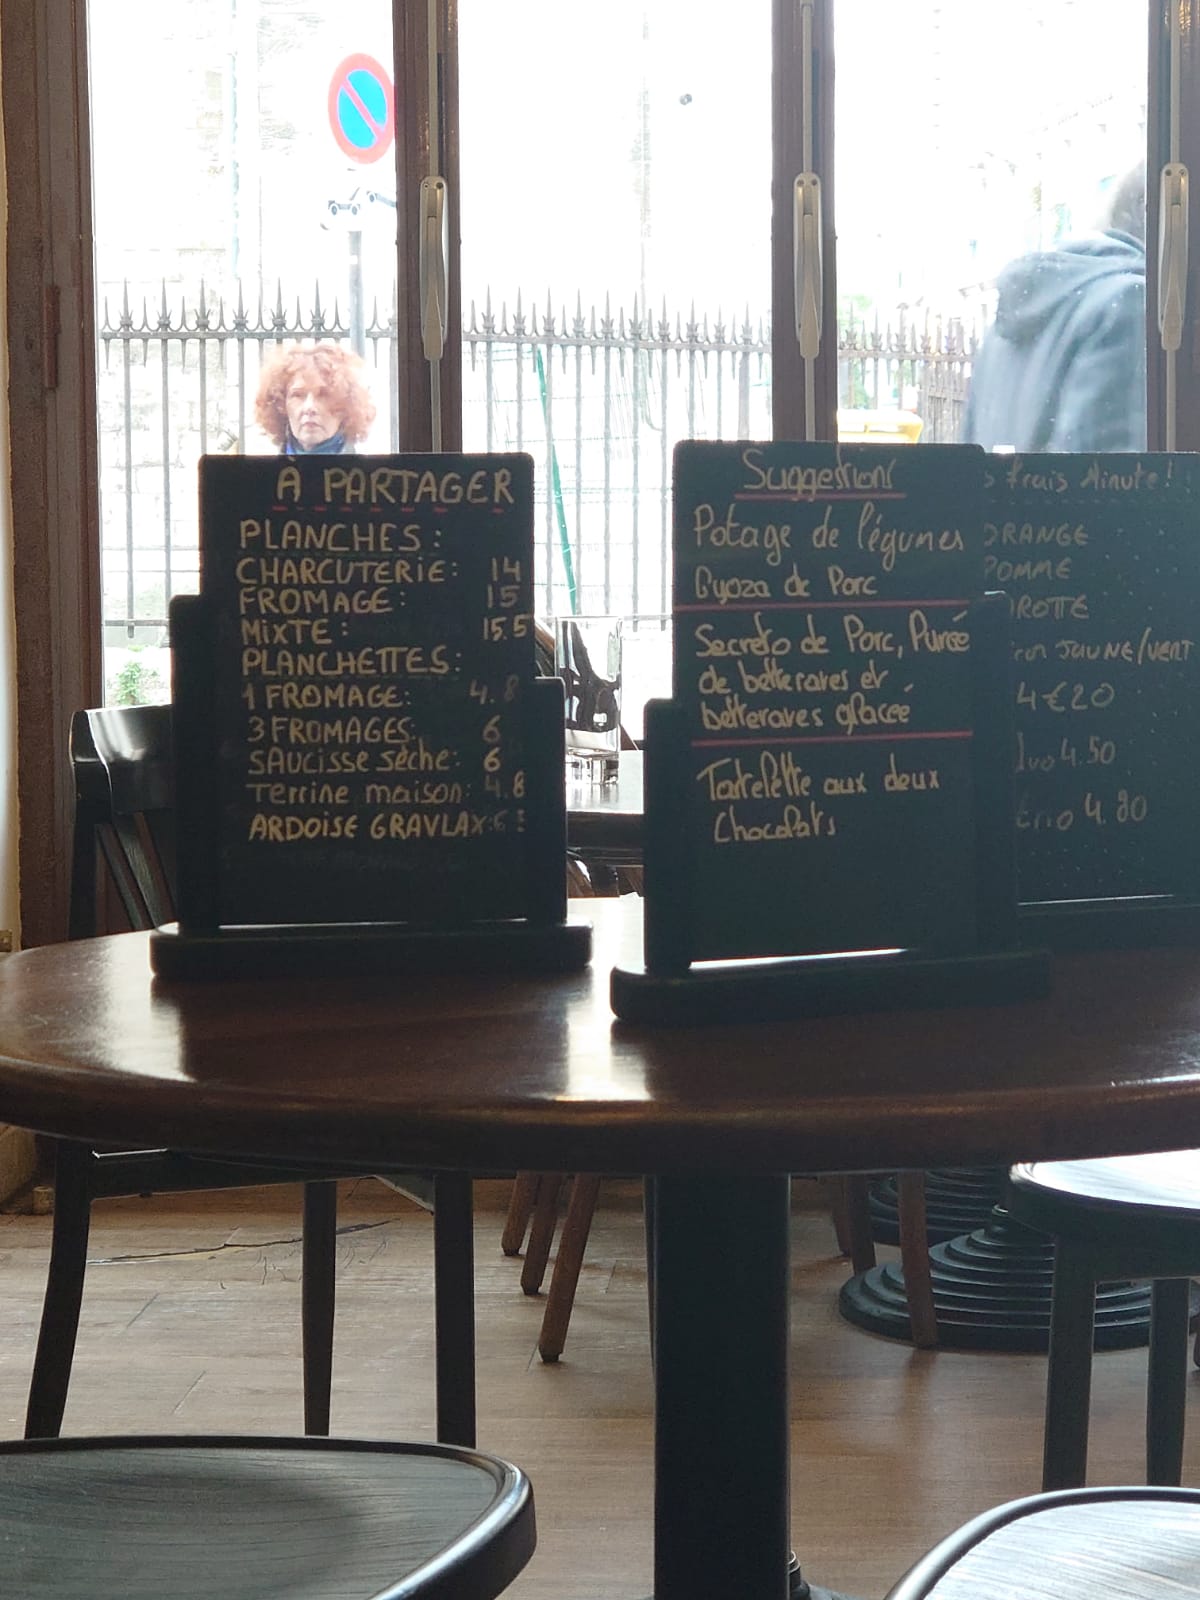 À PARTAGER
PLANCHES :
CHARCUTERIE : 14
FROMAGE : 15
MIXTE : 15.5
PLANCHETTES :
1 FROMAGE : 4.8
3 FROMAGES : 6
SAUCISSE SÈCHE : 6
Terrine maison : 4.8
ARDOISE GRAVLAX :
Suggestions
Potage de légumes
Gyoza de Porc
Secreto de Porc, Purée
de betteraves et
betteraves glacée
Tartelette aux deux
Chocolats
s frais Minute !
ORANGE
POMME
ROTTE
JAUNE/VERT
4€20
4.50
4.80